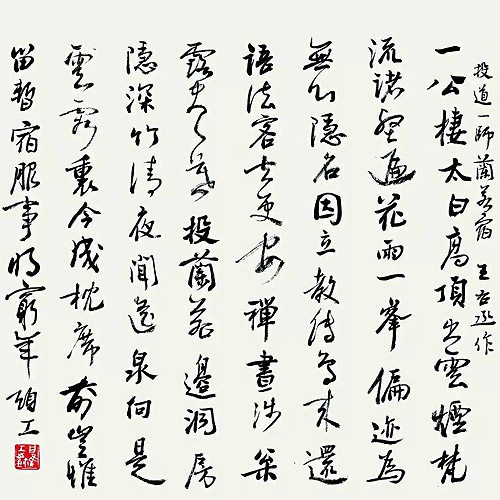 投道一師蘭若宿 王右丞作
一公棲太白高頂出雲煙梵
流諸壑遍花雨一峯偏迹為
無心隱名因立教傳鳥來還
語法客去更安禪晝涉松
露盡暮投蘭若邊洞房
隱深竹清夜聞遙泉向是
雲霞裏今成枕席前豈惟
留暫宿服事將窮年